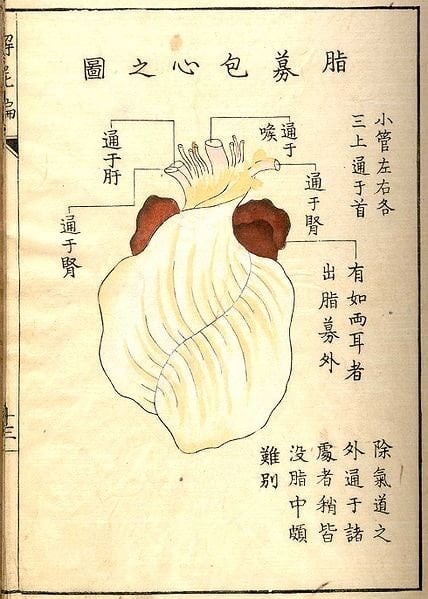 脂募包心之圖
小管左右各
三上通于首
通于喉
通于腎
通于肝
通于腎
有如兩耳者
出脂募外
除氣道之
外通于諸
處者稍皆
没脂中頗
難別
解屍編
十三